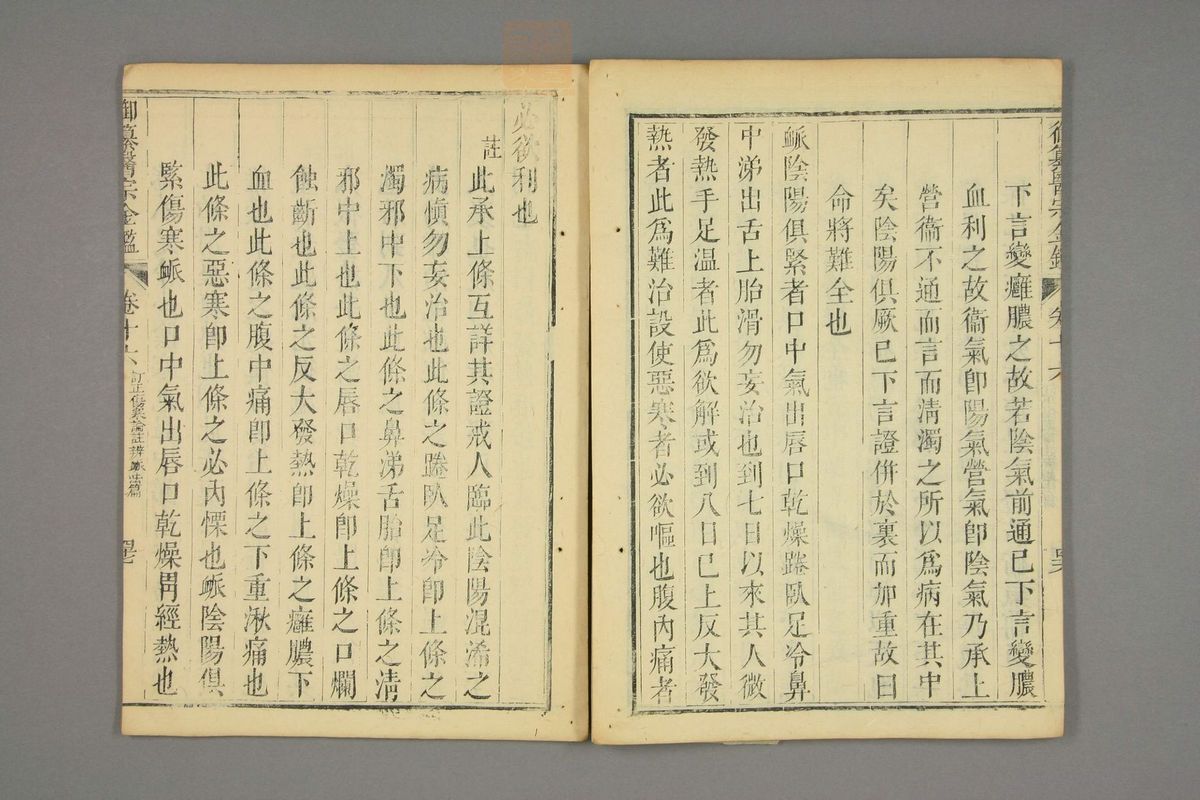 御纂醫宗金鑑 卷十六
下言變癰膿之故若陰氣前通已下言變膿
血利之故衞氣卽陽氣營氣卽陰氣乃承上
營衞不通而言而清濁之所以爲病在其中
矣陰陽俱厥已下言證併於裏而加重故曰
命將難全也
脈陰陽俱緊者口中氣出唇口乾燥踡臥足冷鼻
中涕出舌上胎滑勿妄治也到七日以來其人微
發熱手足溫者此爲欲解或到八日已上反大發
熱者此爲難治設使惡寒者必欲嘔也腹內痛者
必欲利也
註
此承上條互詳其證戒人臨此陰陽混淆之
病愼勿妄治也此條之踡臥足冷卽上條之
濁邪中下也此條之鼻涕舌胎卽上條之清
邪中上也此條之唇口乾燥卽上條之口爛
蝕斷也此條之反大發熱卽上條之癰膿下
血也此條之腹中痛卽上條之下重湫痛也
此條之惡寒卽上條之必內慄也脈陰陽俱
緊傷寒脈也口中氣出唇口乾燥胃經熱也
御纂醫宗金鑑 卷十六 訂正傷寒論註辨脈法篇